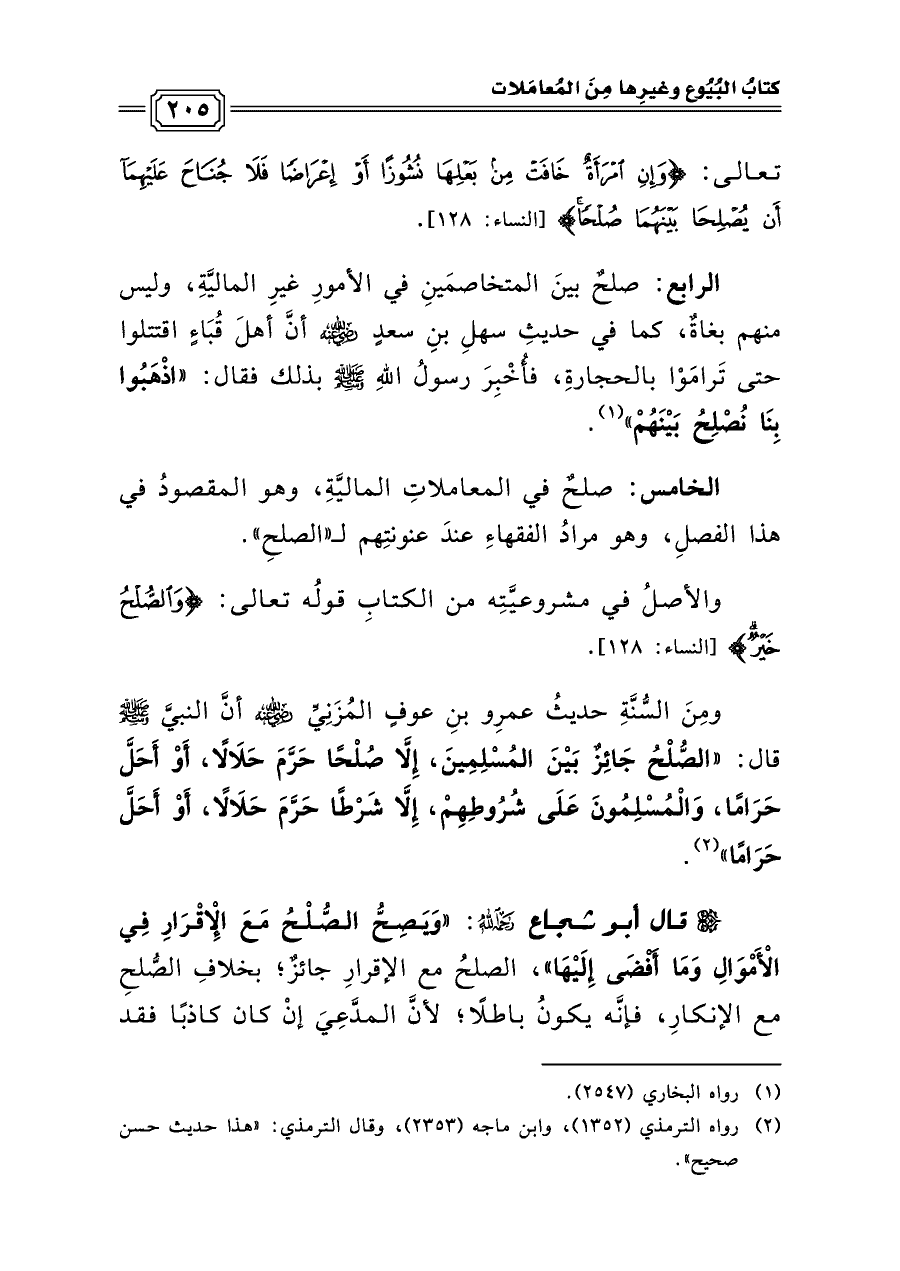 كتابُ البُيُوع وغيرِها مِنَ المُعامَلات
٢٠٥
تعالى: ﴿وَإِنِ ٱمۡرَأَةٌ خَافَتۡ مِنۢ بَعۡلِهَا نُشُوزًا أَوۡ إِعۡرَاضٗا فَلَا جُنَاحَ عَلَيۡهِمَآ
أَن يُصۡلِحَا بَيۡنَهُمَا صُلۡحٗاۚ﴾ [النساء: ١٢٨].
الرابع: صلحٌ بينَ المتخاصمَينِ في الأمورِ غيرِ الماليَّةِ، وليس
منهم بغاةٌ، كما في حديثِ سهلِ بنِ سعدٍ رضي الله عنه أنَّ أهلَ قُبَاءٍ اقتتلوا
حتى تَرامَوْا بالحجارةِ، فأُخْبِرَ رسولُ اللهِ ﷺ بذلك فقال: «اذْهَبُوا
بِنَا نُصْلِحُ بَيْنَهُمْ»(١).
الخامس: صلحٌ في المعاملاتِ الماليَّةِ، وهو المقصودُ في
هذا الفصلِ، وهو مرادُ الفقهاءِ عندَ عنونتِهم لـ«الصلحِ».
والأصلُ في مشروعيَّتِه من الكتابِ قولُه تعالى: ﴿وَٱلصُّلۡحُ
خَيۡرٞۗ﴾ [النساء: ١٢٨].
ومِنَ السُّنَّةِ حديثُ عمرِو بنِ عوفٍ المُزَنِيِّ رضي الله عنه أنَّ النبيَّ ﷺ
قال: «الصُّلْحُ جَائِزٌ بَيْنَ المُسْلِمِينَ، إِلَّا صُلْحًا حَرَّمَ حَلَالًا، أَوْ أَحَلَّ
حَرَامًا، وَالْمُسْلِمُونَ عَلَى شُرُوطِهِمْ، إِلَّا شَرْطًا حَرَّمَ حَلَالًا، أَوْ أَحَلَّ
حَرَامًا»(٢).
قال أبو شجاع رحمه الله: «وَيَصِحُّ الصُّلْحُ مَعَ الْإِقْرَارِ فِي
الْأَمْوَالِ وَمَا أَفْضَى إِلَيْهَا»، الصلحُ مع الإقرارِ جائزٌ؛ بخلافِ الصُّلحِ
مع الإنكارِ، فإنَّه يكونُ باطلًا؛ لأنَّ المدَّعِيَ إنْ كان كاذبًا فقد
(١) رواه البخاري (٢٥٤٧).
(٢) رواه الترمذي (١٣٥٢)، وابن ماجه (٢٣٥٣)، وقال الترمذي: «هذا حديث حسن
صحيح».